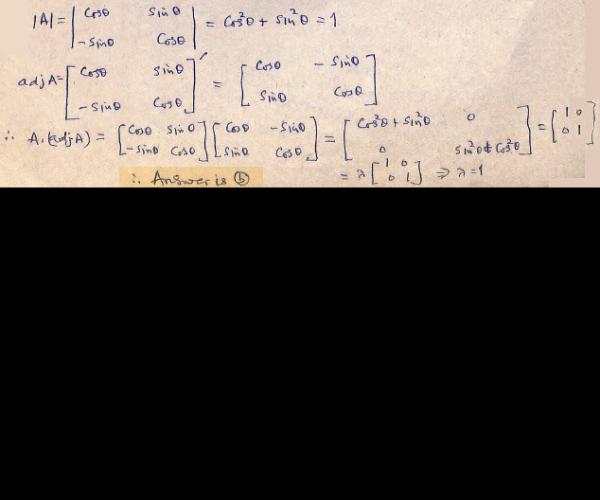 |A| = | Cosθ Sinθ -Sinθ Cosθ | = Cos²θ + Sin²θ = 1
adj A = [ Cosθ Sinθ -Sinθ Cosθ ]′ = [ Cosθ -Sinθ Sinθ Cosθ ]
∴ A.(adjA) = [ Cosθ Sinθ -Sinθ Cosθ ] [ Cosθ -Sinθ Sinθ Cosθ ] = [ Cos²θ + Sin²θ 0 0 Sin²θ + Cos²θ ] = [ 1 0 0 1 ]
= λ [ 1 0 0 1 ] ⇒ λ = 1
∴ Answer is ⓑ